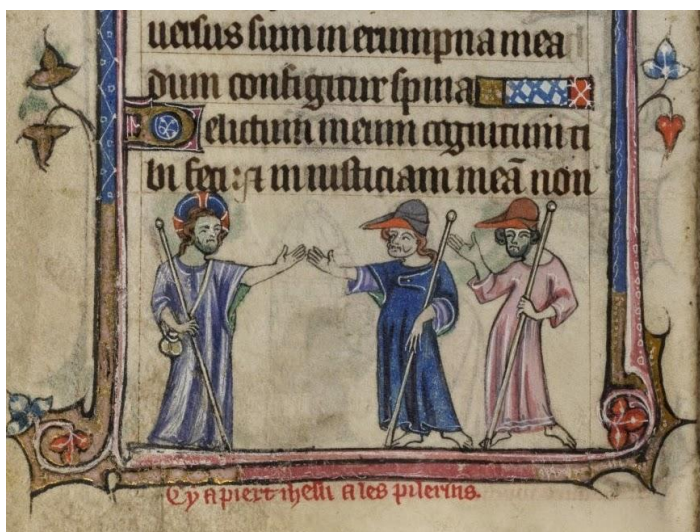 uersus sum in erumpna mea
dum configitur spina
Delictum meum cognitum ti
bi feci: et iniusticiam meā non
Cy apiert ihesu a les pilerins.